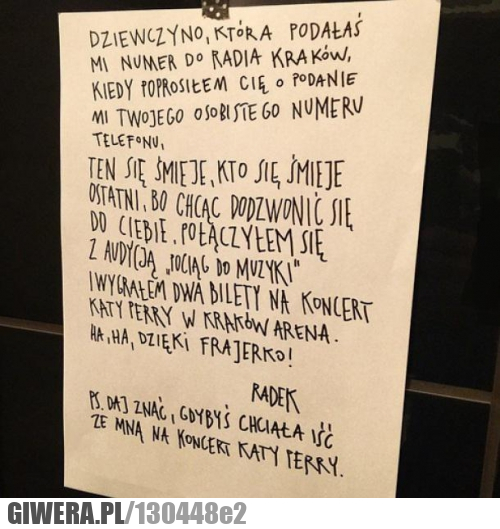 DZIEWCZYNO, KTÓRA PODAŁAŚ
MI NUMER DO RADIA KRAKÓW,
KIEDY POPROSIŁEM CIĘ O PODANIE
MI TWOJEGO OSOBISTEGO NUMERU
TELEFONU,
TEN SIĘ ŚMIEJE, KTO SIĘ ŚMIEJE
OSTATNI, BO CHCĄC DODZWONIĆ SIĘ
DO CIEBIE, POŁĄCZYŁEM SIĘ
Z AUDYCJĄ „POCIĄG DO MUZYKI"
I WYGRAŁEM DWA BILETY NA KONCERT
KATY PERRY W KRAKÓW ARENA.
HA, HA, DZIĘKI FRAJERKO!
RADEK
PS. DAJ ZNAĆ, GDYBYŚ CHCIAŁA IŚĆ
ZE MNĄ NA KONCERT KATY PERRY.
GIWERA.PL/130448e2